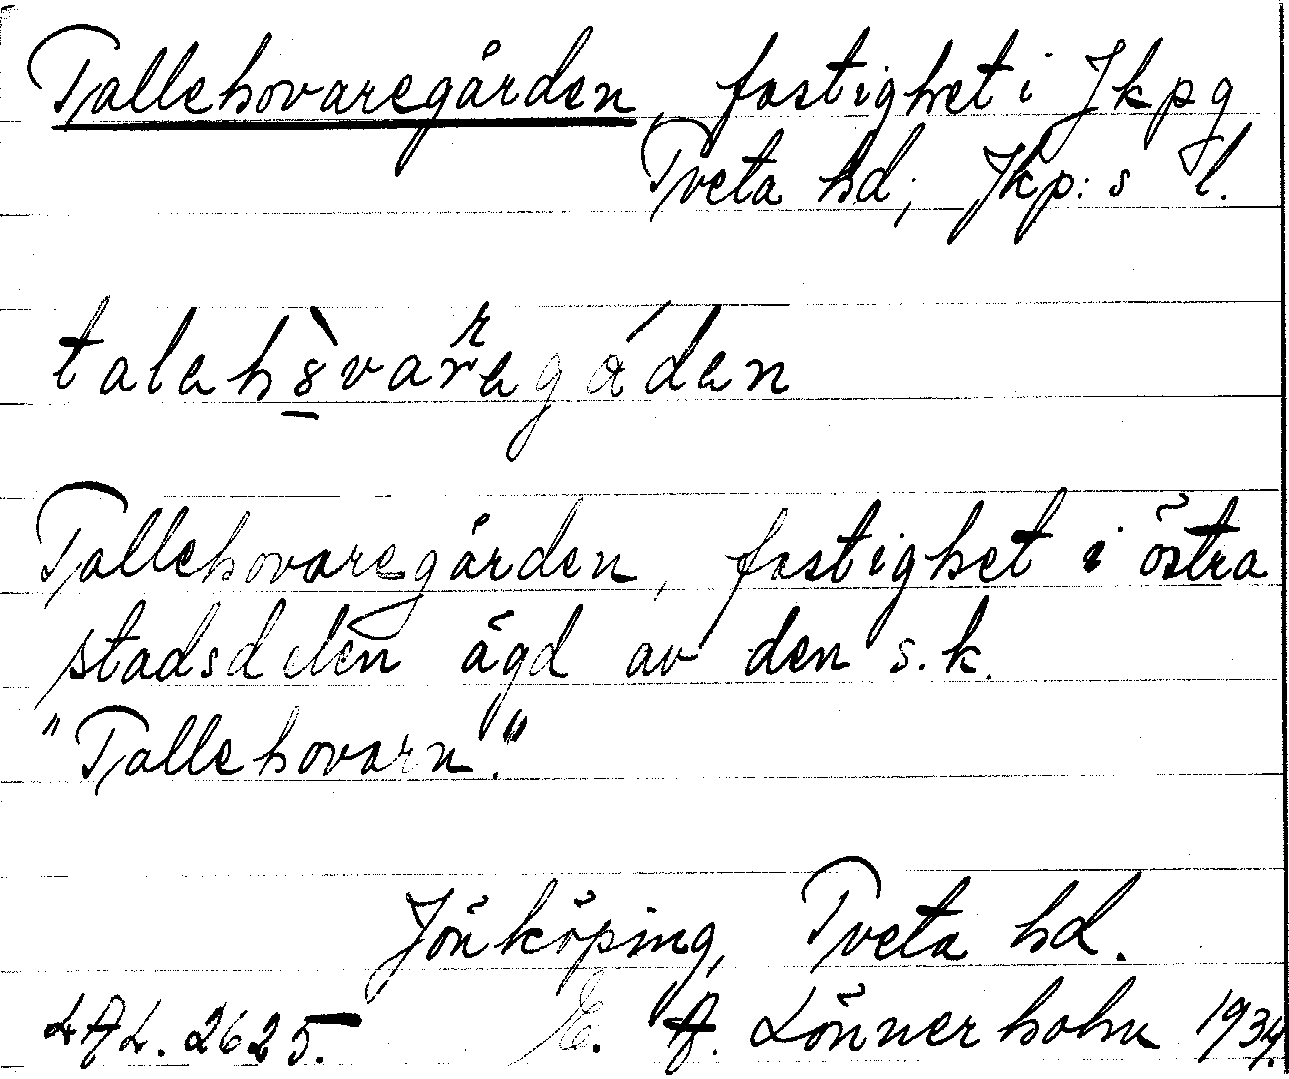 Tallehovaregården, fastighet i Jkpg
Tveta hd; Jkp:s l.
Tallehovaregården, fastighet i östra
stadsdelen ägd av den s.k.
"Tallehovarn."
Jönköping, Tveta hd.
LAL. 2625. E. A. Lönnerholm 1934.